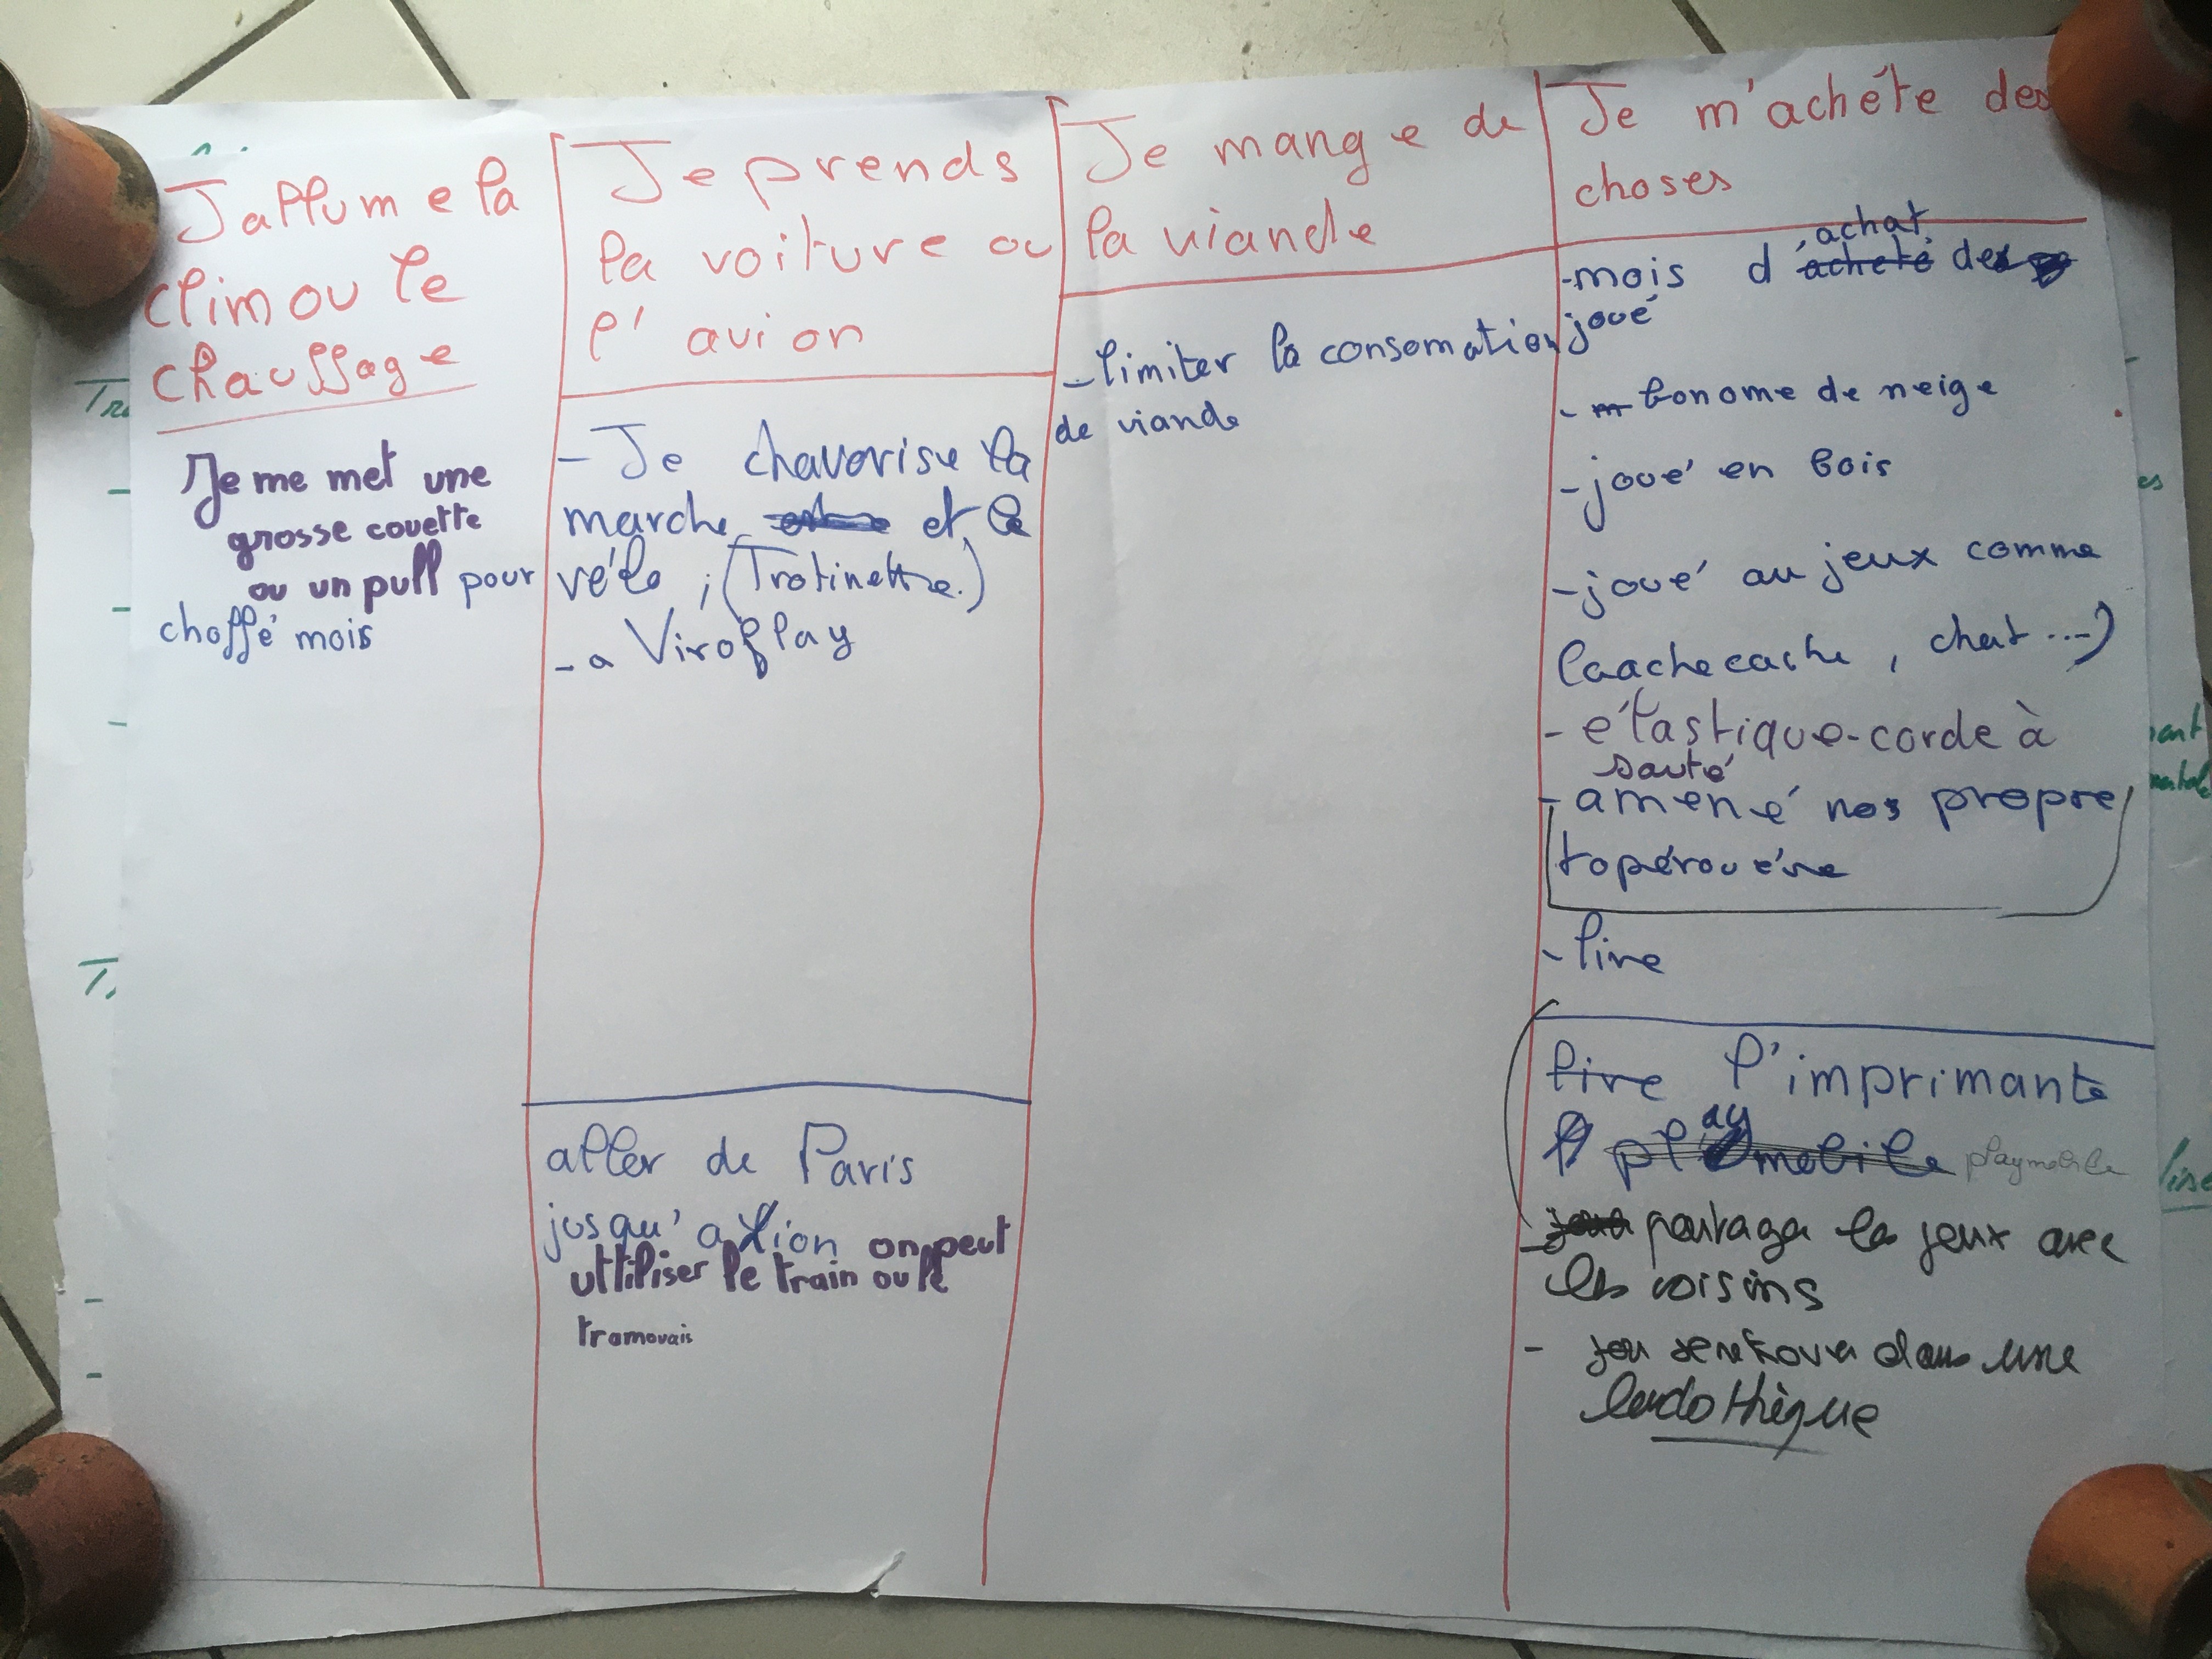 Jallume la
clim ou le
chauffage
Je me met une
grosse couette
ou un pull pour
choffé mois
Je prends
la voiture ou
l'avion
- Je chavorise la
marche et le
vélo ; (Trotinette.)
- a Viroflay
aller de Paris
jusqu'a Lion on peut
uttiliser le train ou le
tramovais
Je mange de
la viande
- limiter la consomation
de viande
Je m'achéte des
choses
- mois d'achat de
joué
- bonome de neige
- joué en bois
- joué au jeux comme
caachecache, chat ...)
- élastique-corde à
sauté
- amené nos propre
topérouére
- lire
lire l'imprimante
playmobile
partager les jeux avec
les voisins
- dans une
ludothèque